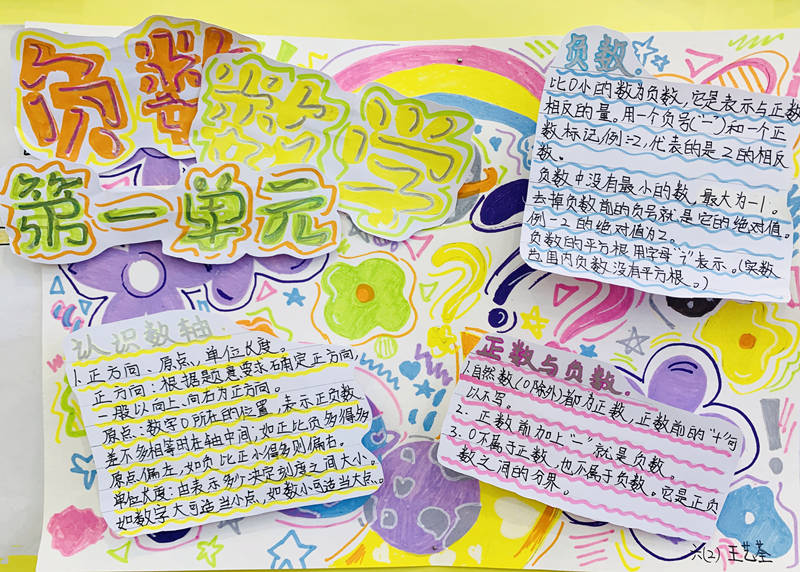 负数
数学
第一单元
负数.
比0小的数为负数，它是表示与正数
相反的量。用一个负号("一")和一个正
数标记，例:-2，代表的是2的相反
数。
负数中没有最小的数，最大为-1.
去掉负数前的负号就是它的绝对值。
例-2的绝对值为2。
负数的平方根用字母"i"表示。(实数
范围内负数没有平方根。)
认识数轴.
1.正方向、原点，单位长度。
正方向：根据题意要求石角定正方向，
一般以向上、向右为正方向。
原点：数字0所在的位置，表示正负数
差不多相等时在轴中间；如正比负多得多
原点偏左，如负比正小得多则偏右。
单位长度：由表示多少决定刻度之间大小。
如数字大可适当小点，如数小可适当大点。
正数与负数.
1.自然数(0除外)都为正数，正数前的"+"可
以不写。
2.正数前加上"一"就是负数。
3.0不属于正数，也不属于负数。它是正负
数之间的分界。
六(2) 王艺荃